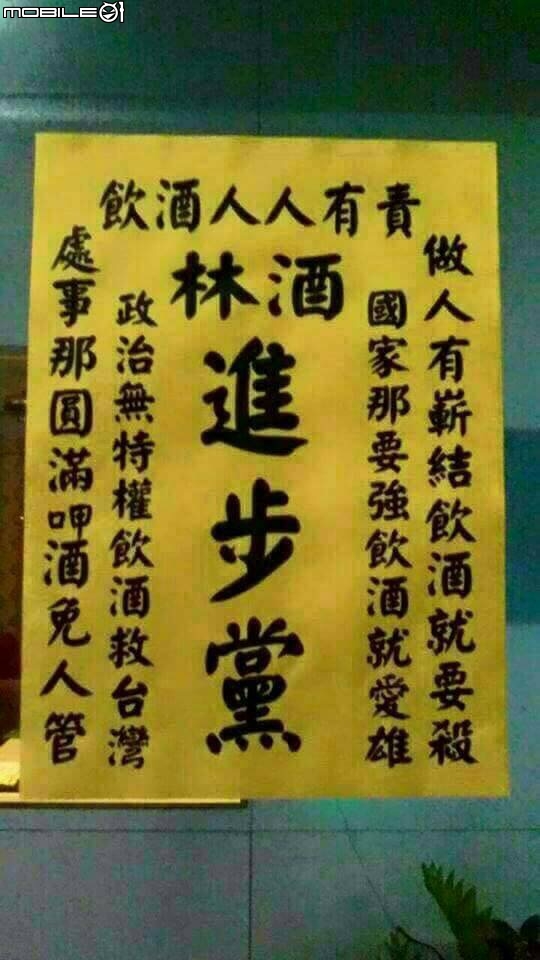 MOBILE01
飲酒人人有責
林酒
進步黨
做人有嶄結飲酒就要殺
國家那要強飲酒就愛雄
政治無特權飲酒救台灣
處事那圓滿呷酒免人管